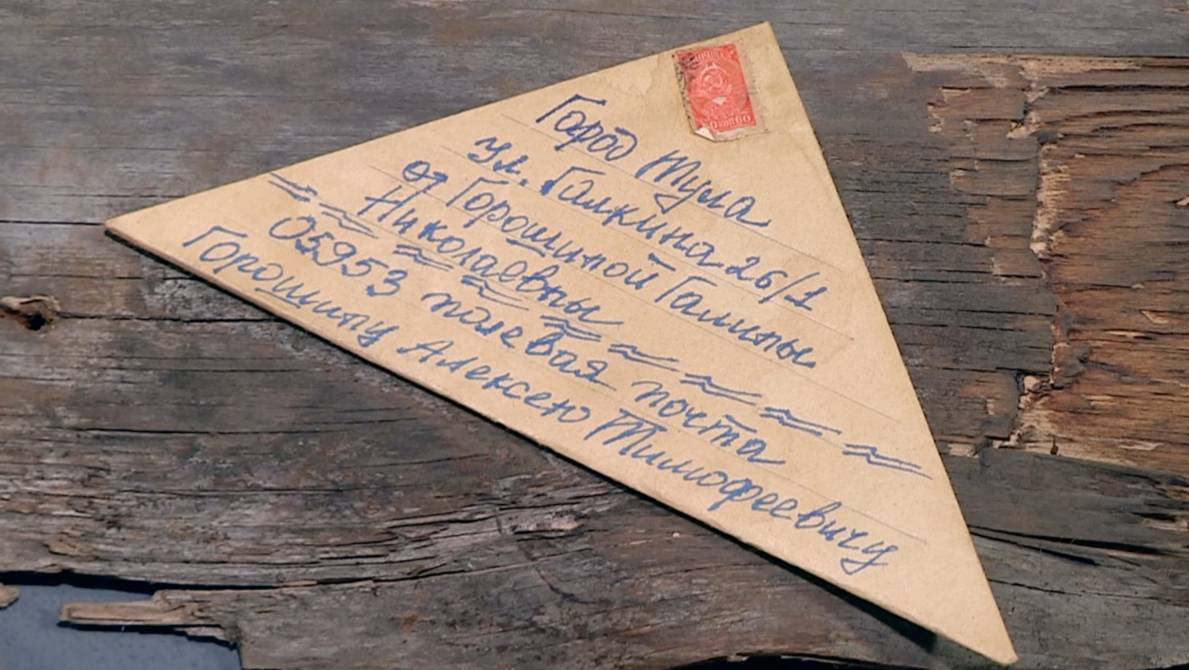 Город Тула
ул. Галкина 26/1
от Горошиной Галины
Николаевны
05953 полевая почта
Горошину Алексею Тимофеевичу